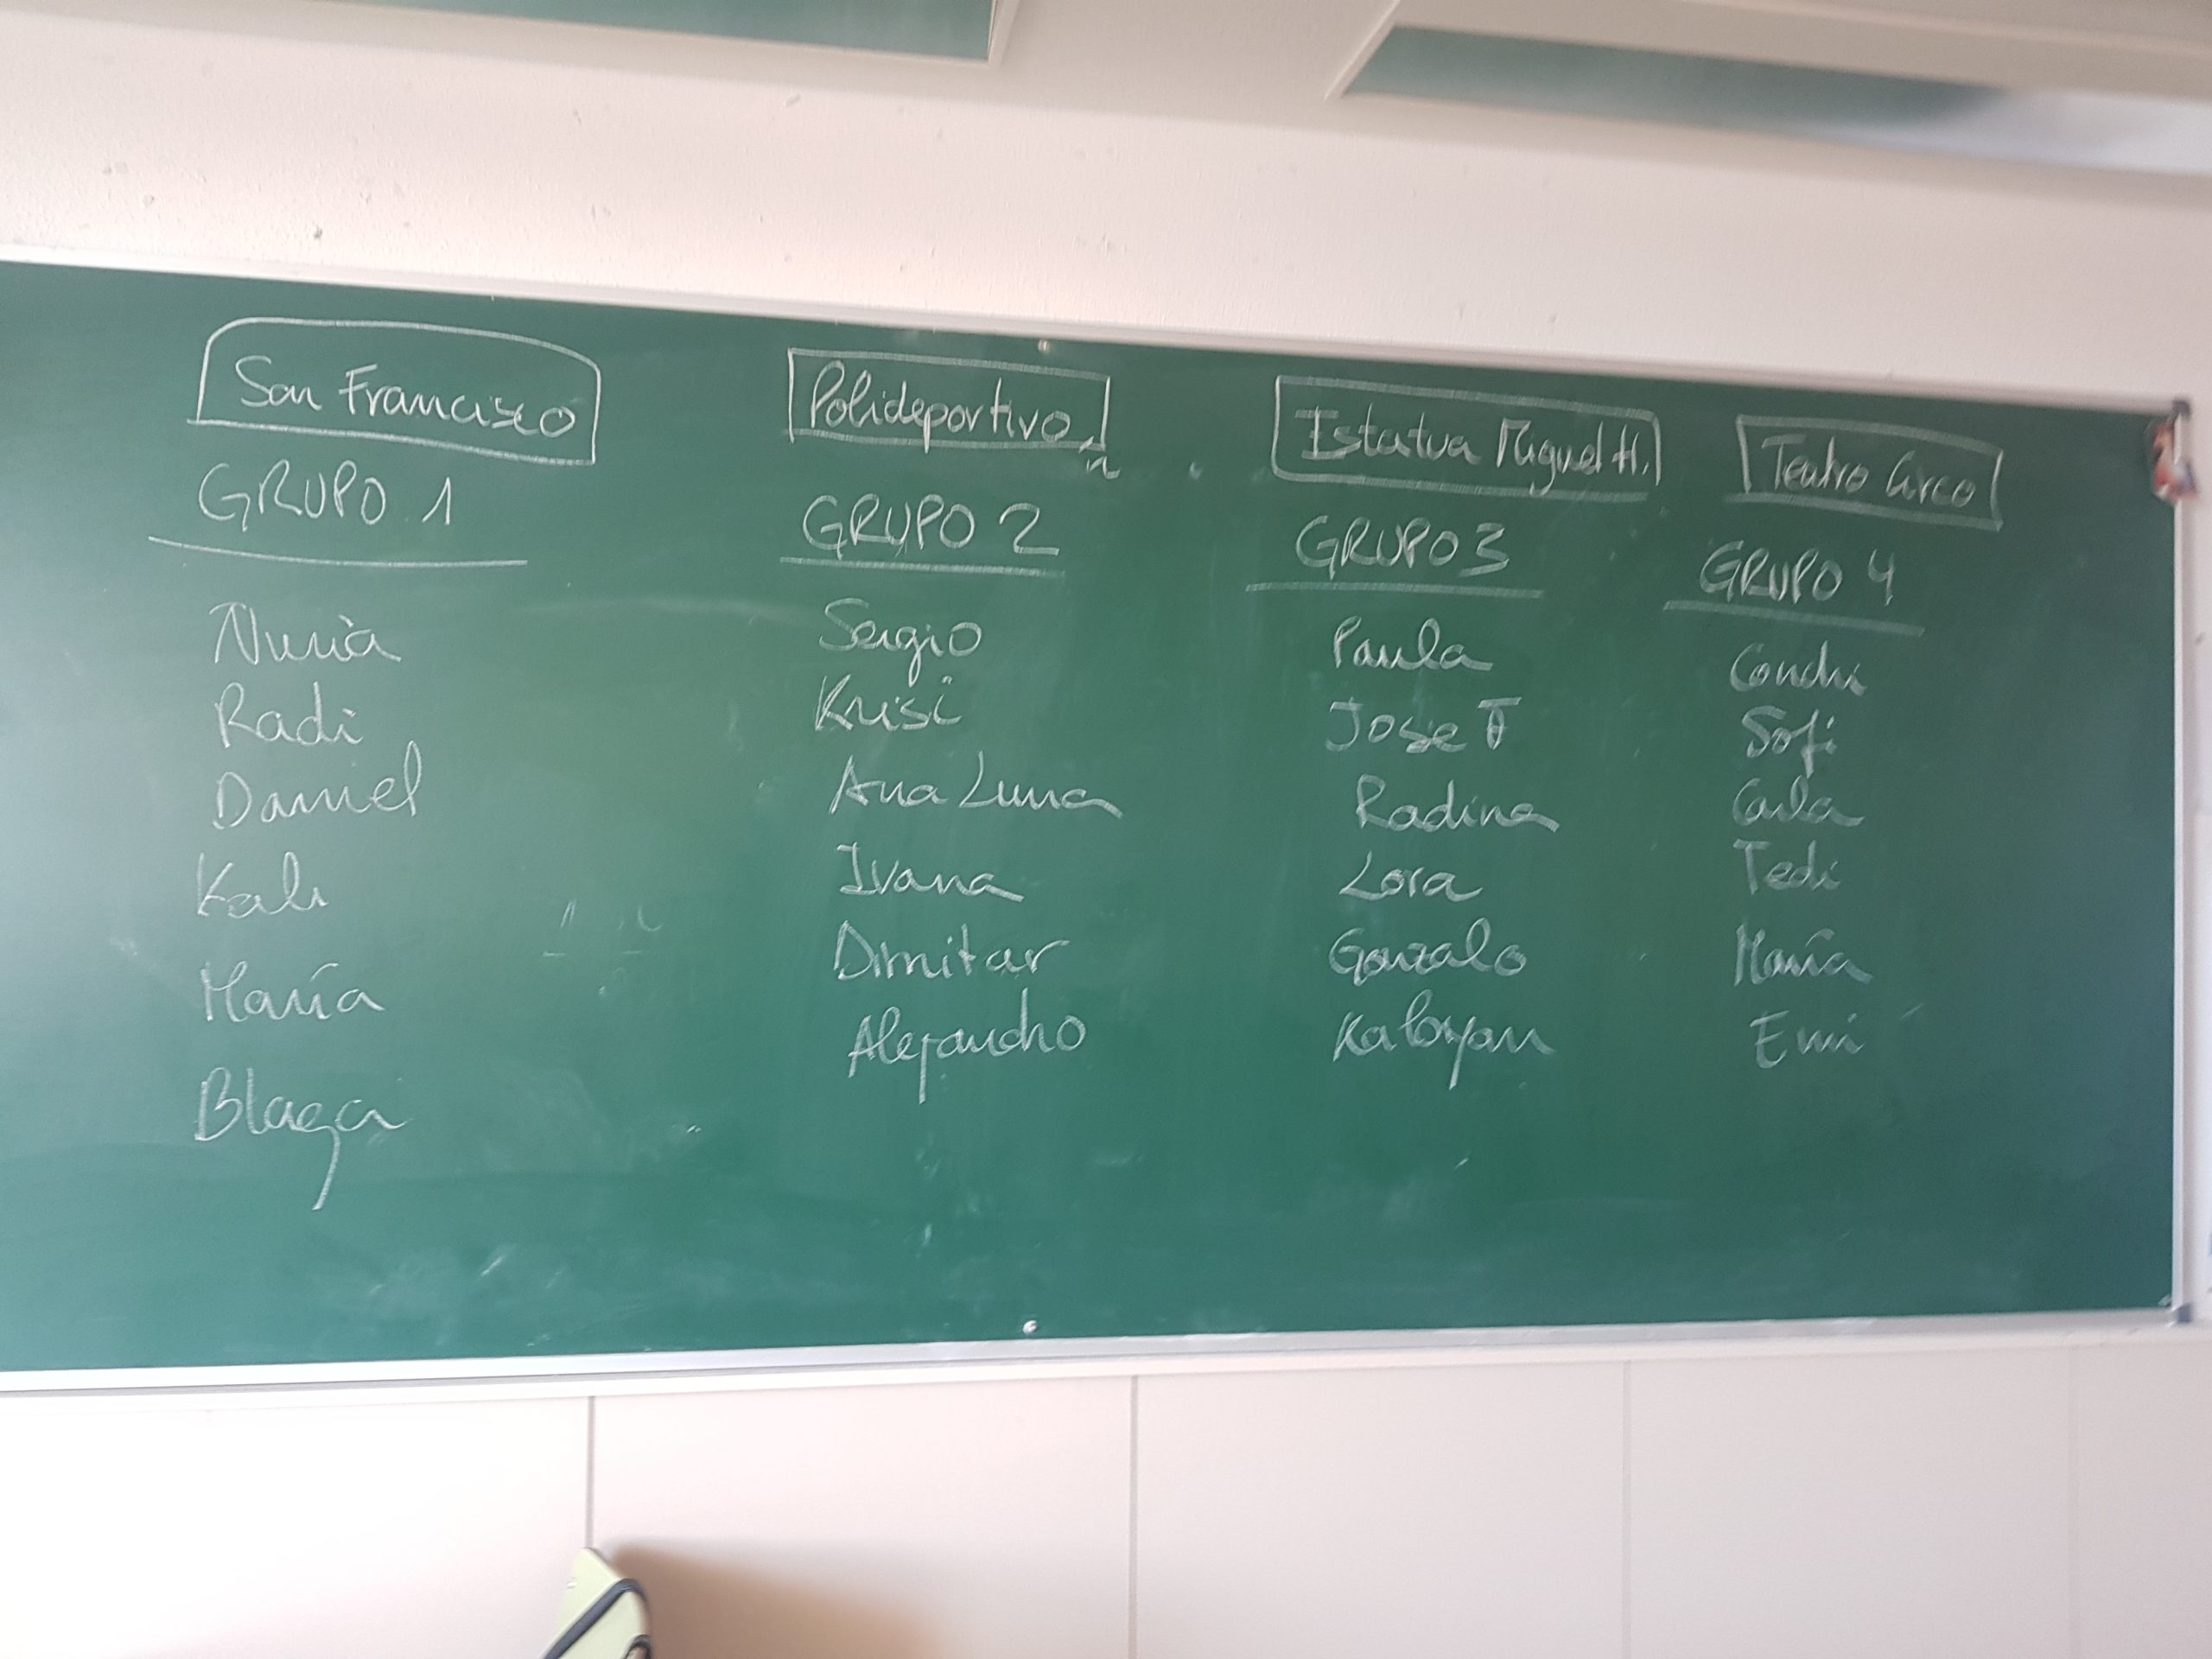 San Francisco
GRUPO 1
Nuria
Radi
Daniel
Kali
María
Blaga
Polideportivo
GRUPO 2
Sergio
Krisi
Ana Luna
Ivana
Dimitar
Alejandro
Estatua Miguel H.
GRUPO 3
Paula
Jose
Radina
Lora
Gonzalo
Kaloyan
Teatro Circo
GRUPO 4
Conchi
Sofi
Carla
Tedi
María
Emi